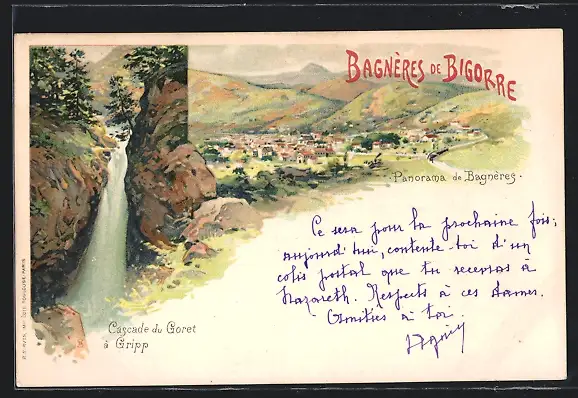 BAGNÈRES DE BIGORRE
· Panorama de Bagnères ·
Ce sera pour la prochaine fois;
aujourd'hui, contente toi d'un
colis postal que tu recevras à
Nazareth. Respects à ces dames.
Amitiés à toi.
Cascade du Goret
à Gripp